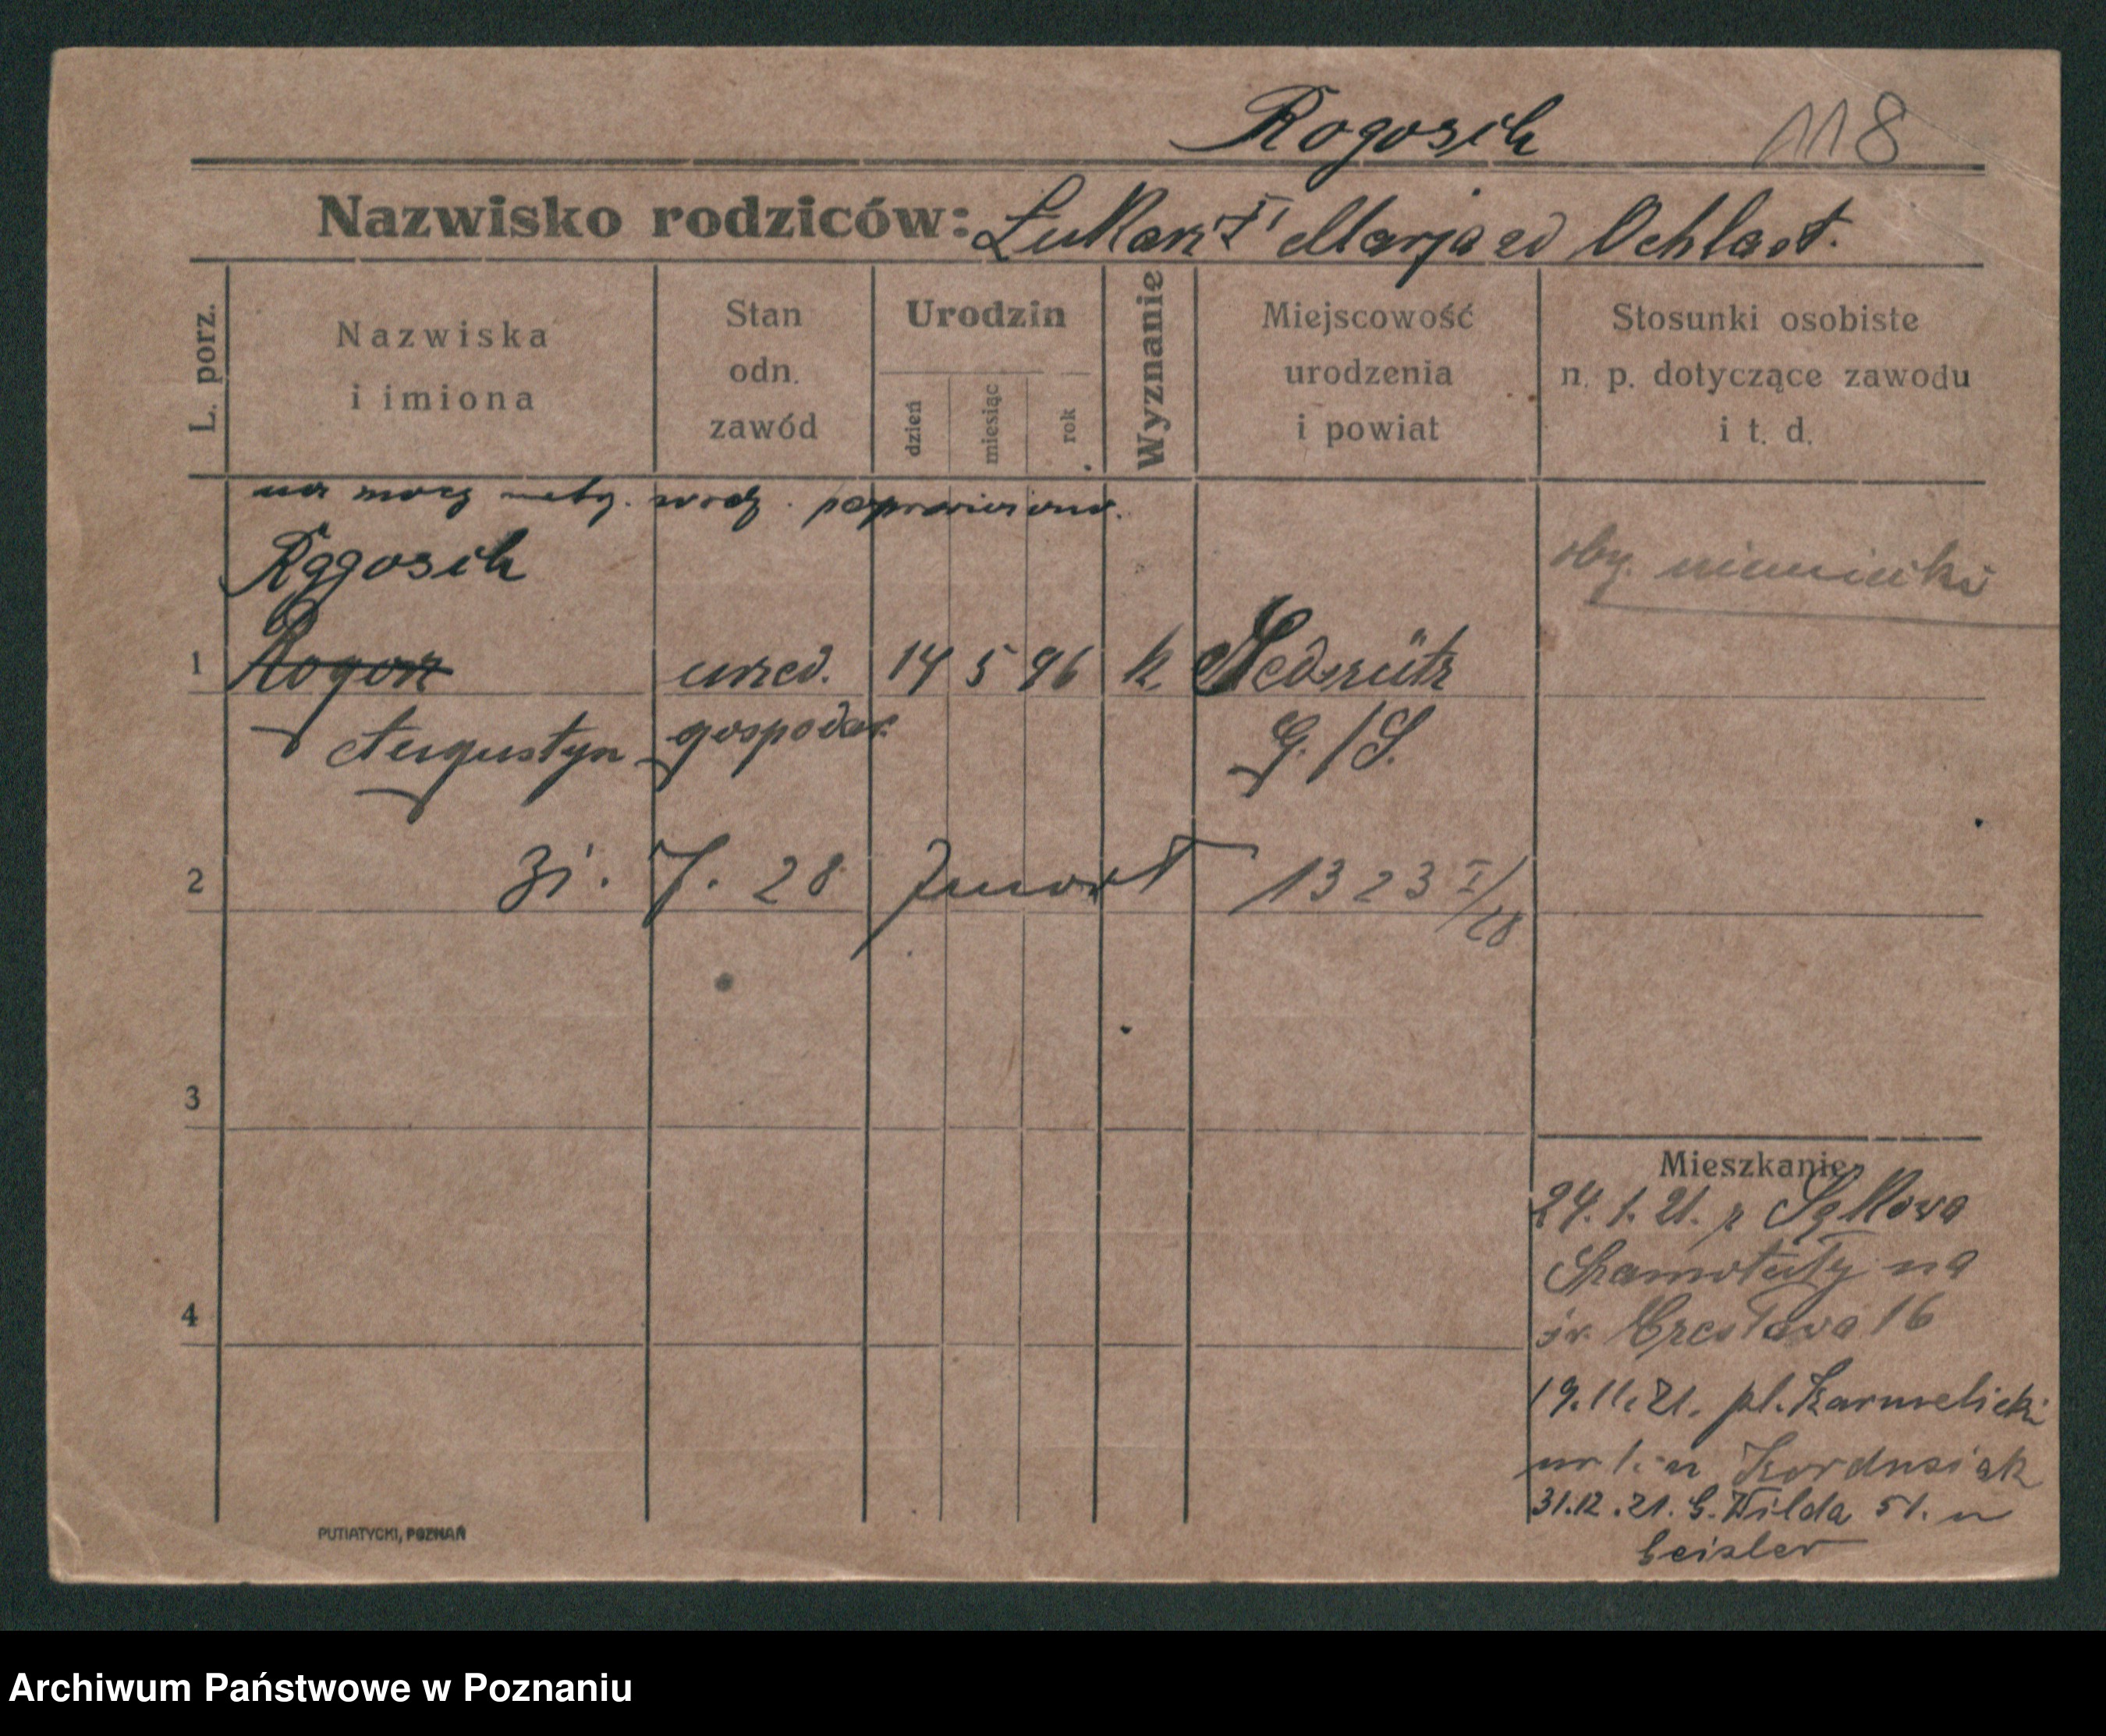 Rogosik 118
Nazwisko rodziców: Łukasz i Marja zd Ochlast.
L. porz.
Nazwiska
i imiona
Stan
odn.
zawód
Urodzin
dzień
miesiąc
rok
Wyznanie
Miejscowość
urodzenia
i powiat
Stosunki osobiste
n. p. dotyczące zawodu
i t. d.
na mocy metr. urodz. poprawiono.
Rogosik
oby. niemiecki
1 Rogoz urzed. 14 5 96 k.
Augustyn gospodar.
G./S.
2 31. 7. 28 1323 I/28
3
Mieszkanie
24. 1. 21. z
Szamotuły na
4
św. Czesława 16
19.11.21. pl. Karmelicki
nr 1. u Kordusiak
31.12.21. G. Wilda 51. u
Geisler
PUTIATYCKI, POZNAŃ
Archiwum Państwowe w Poznaniu